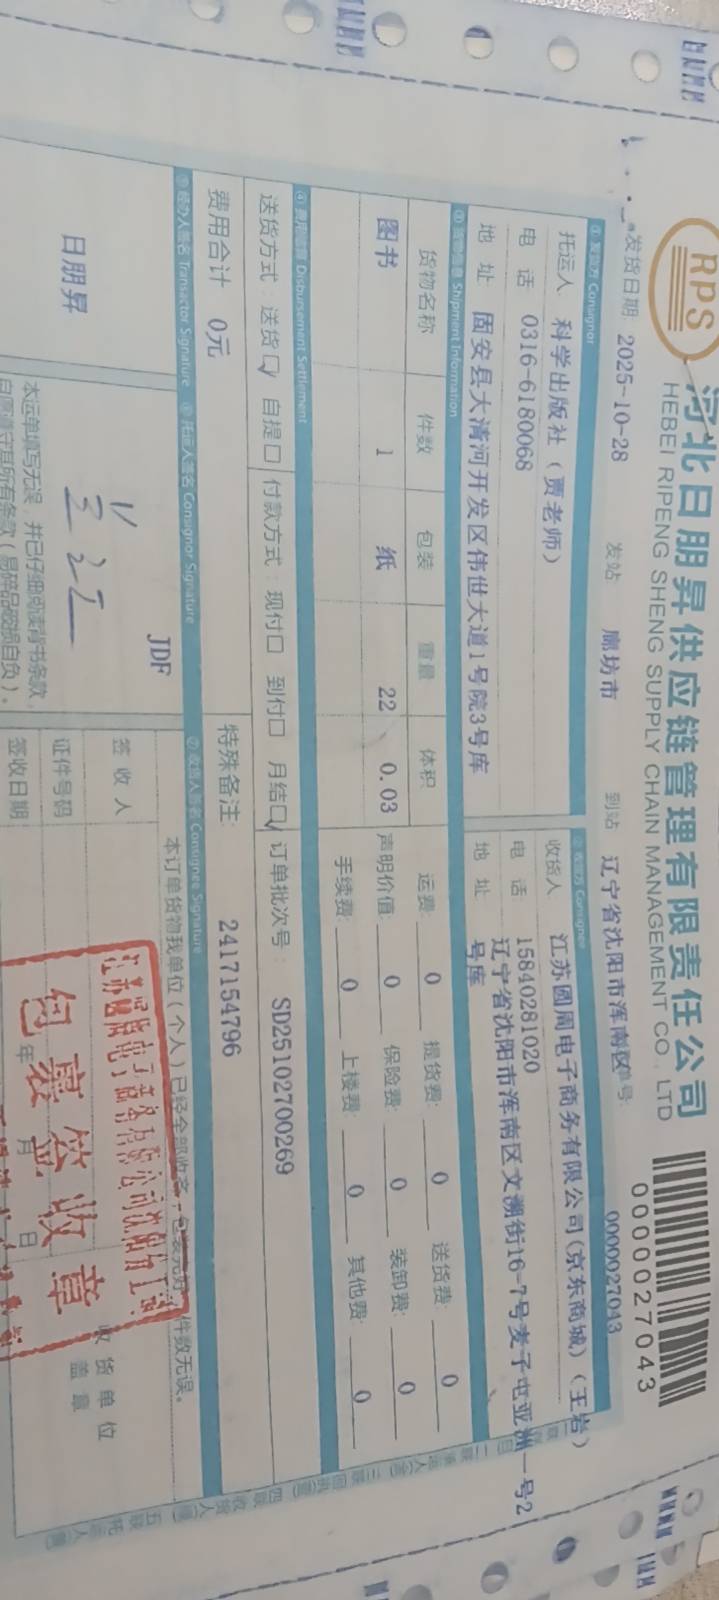 RPS
河北日朋昇供应链管理有限责任公司
HEBEI RIPENG SHENG SUPPLY CHAIN MANAGEMENT CO., LTD
0000027043
发货日期: 2025-10-28 发站 廊坊市 到站 辽宁省沈阳市浑南区 单号: 0000027043
① 发货方 Consignor
托运人 科学出版社（贾老师）
电 话 0316-6180068
地 址 固安县大清河开发区伟世大道1号院3号库
② 收货方 Consignee
收货人 江苏圆周电子商务有限公司(京东商城)（王岩）
电 话 15840281020
地 址 辽宁省沈阳市浑南区文溯街16-7号麦子屯亚洲一号2号库
③ 货物信息 Shipment Information
货物名称 件数 包装 重量 体积
图书 1 纸 22 0.03
运费: 0 提货费: 0 送货费: 0
声明价值: 0 保险费: 0 装卸费: 0
手续费: 0 上楼费: 0 其他费: 0
④ 费用结算 Disbursement Settlement
送货方式 送货☑ 自提☐ 付款方式: 现付☐ 到付☐ 月结☑ 订单批次号: SD25102700269
费用合计 0元 特殊备注: 2417154796
⑤ 经办人签名 Transactor Signature
日朋昇
⑥ 托运人签名 Consignor Signature
JDF
本运单填写无误，并已仔细阅读背书条款，
自愿遵守其所有条款（易碎品破损自负）。
⑦ 收货人签名 Consignee Signature
本订单货物我单位（个人）已经全部收讫，包装完好，件数无误。
签收人
证件号码
签收日期: 年 月 日
收货单位
盖章
包裹签收章